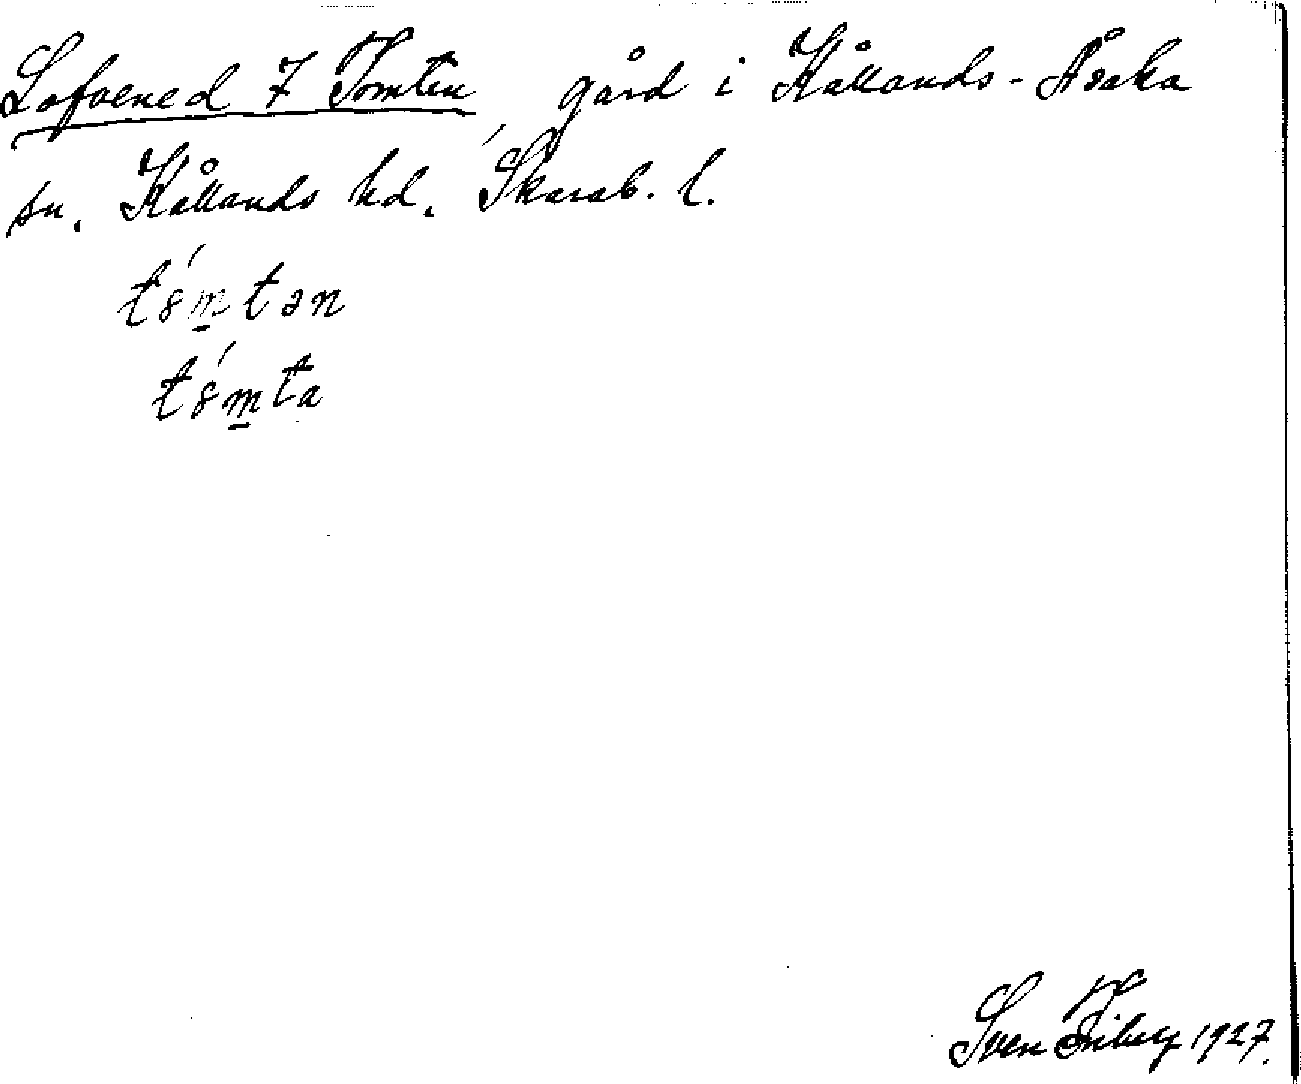 Lofvened 7 Tomten gård i Kållands-Åsaka
sn. Kållands hd. Skarab. l.
tó̤mtən
tó̤mta
Sven Friberg 1927.